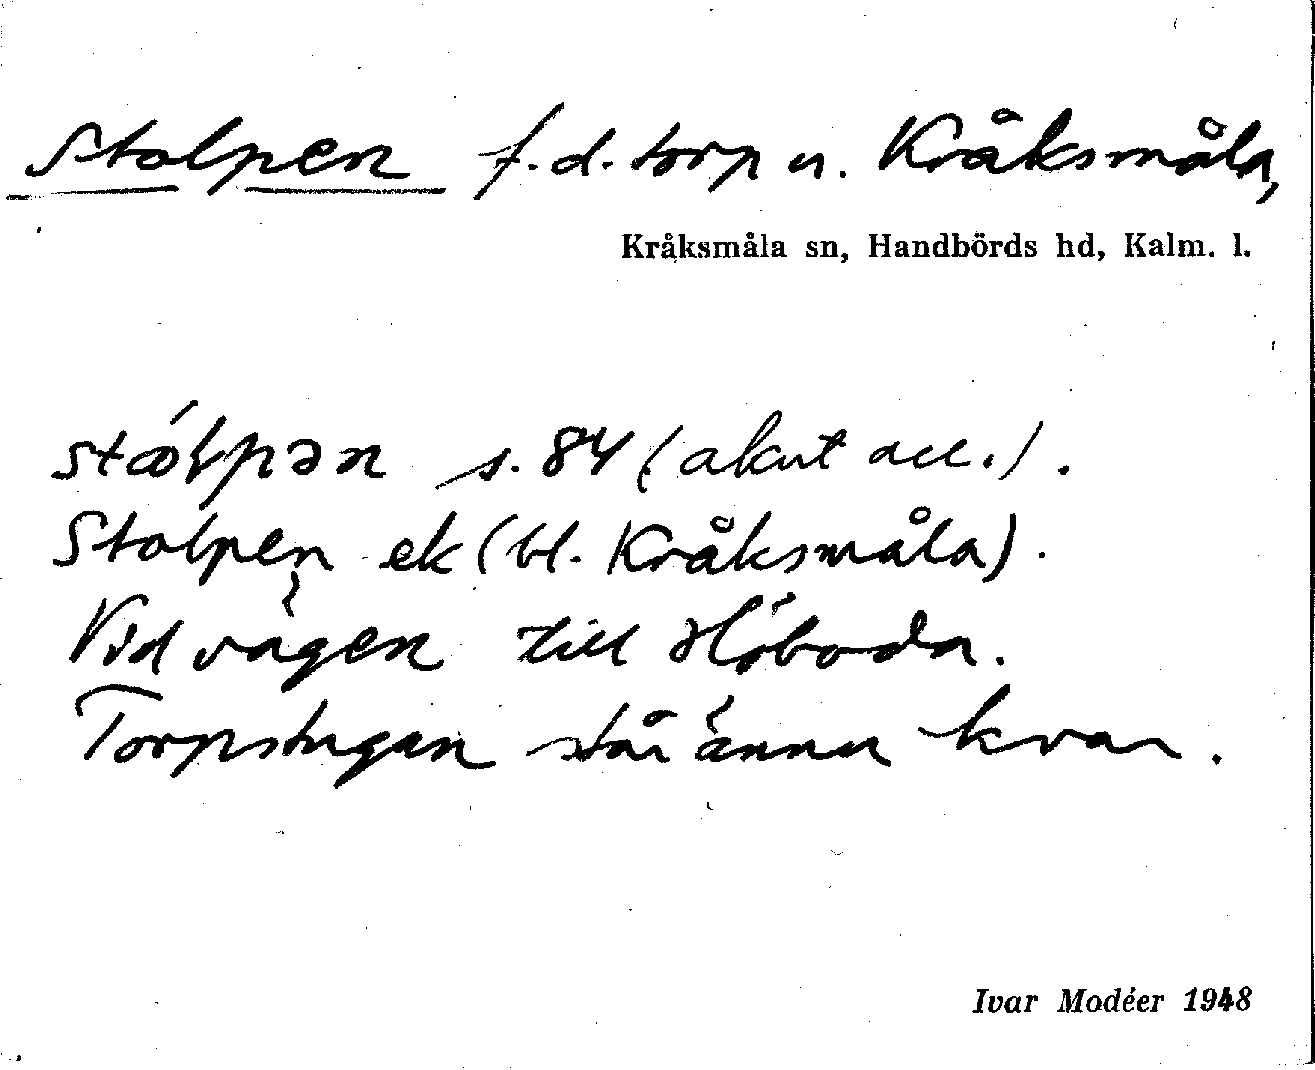 Stolpen f.d. torp u. Kråksmåla,
Kråksmåla sn, Handbörds hd, Kalm. l.
s. 84 (akut acc.).
Stolpen ek (bl. Kråksmåla).
Vid vägen till Höboda.
Torpstugan står ännu kvar.
Ivar Modéer 1948